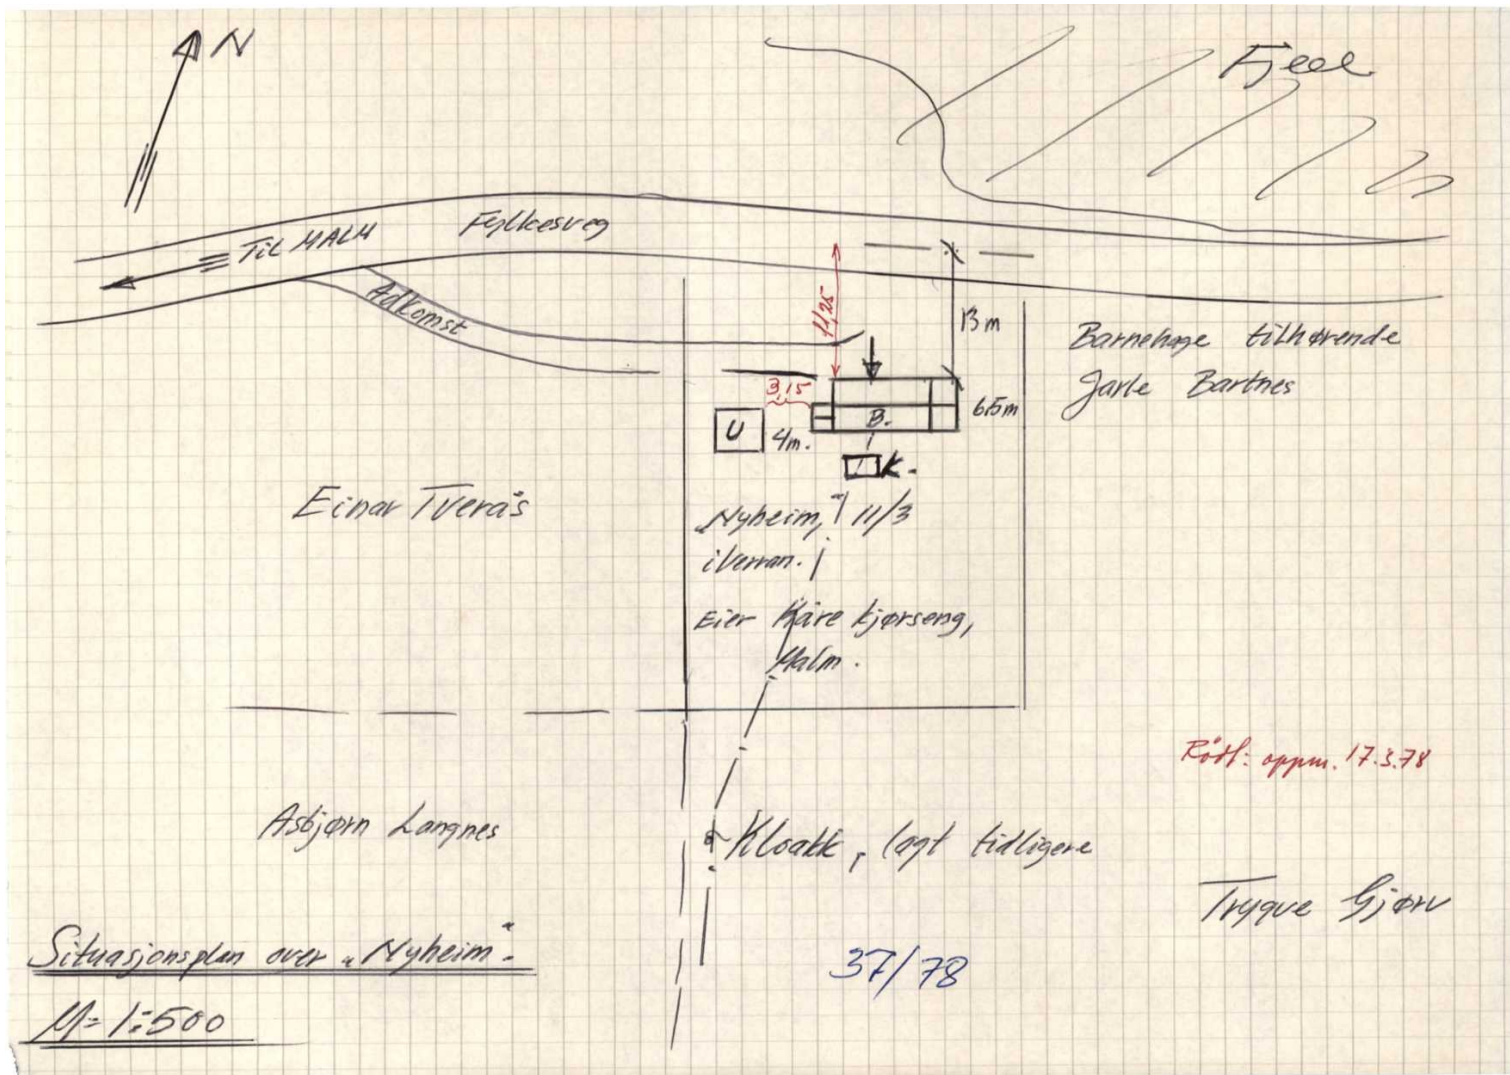 N
Fjell
Til MALM
Fylkesveg
Adkomst
11,25
13 m
Barnehage tilhørende
Jarle Bartnes
3,15
6,5m
U
4m.
B.
K.
Einar Tverås
„Nyheim," 11/3
i Verran.
Eier Kåre Kjørseng,
Malm.
Rødt: oppm. 17.3.78
Asbjørn Langnes
Kloakk, lagt tidligere
Trygve Gjørv
Situasjonsplan over „Nyheim".
37/78
M= 1:500